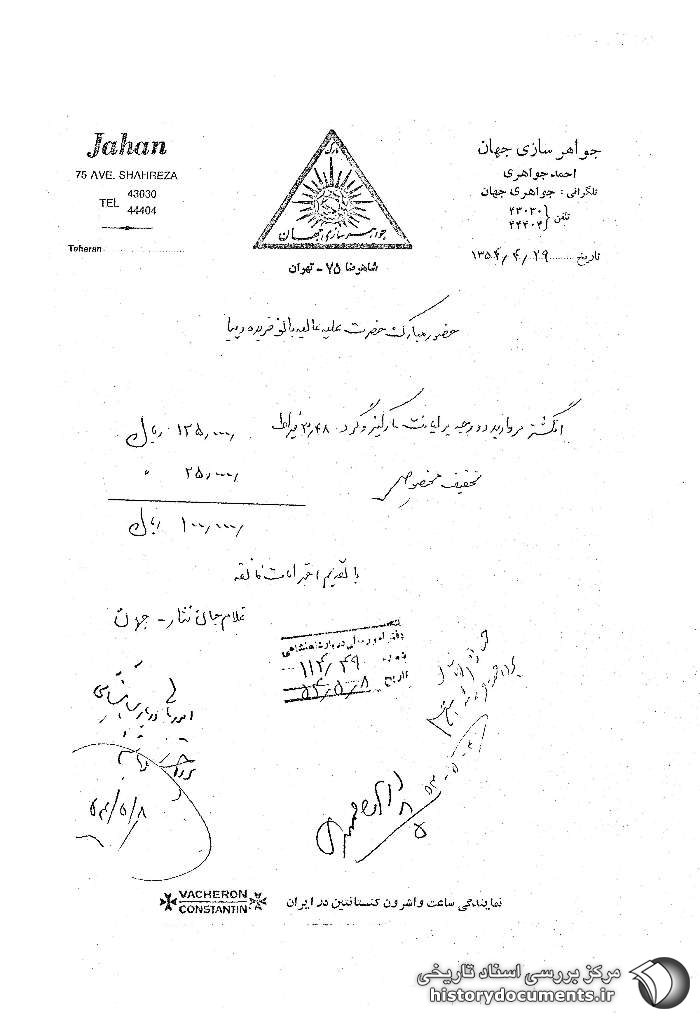 Jahan
75 AVE. SHAHREZA
TEL 43030
44404
Teheran
مارک
جواهرسازی جهان
شاهرضا ۷۵ - تهران
جواهر سازی جهان
احمد جواهری
تلگرافی : جواهری جهان
تلفن ۴۳۰۳۰
۴۴۴۰۴
تاریخ ۱۳۵۴/۴/۲۹
حضور مبارک حضرت علیه عالیه بانو فریده دیبا
انگشتر مروارید دو رجه برلیانت مارکیز و گرد ۳٫۴۸ قیراط ۱۲۵٫۰۰۰ ریال
تخفیف مخصوص ۲۵٫۰۰۰ "
۱۰۰٫۰۰۰ ریال
با تقدیم احترامات فائقه
غلام جان نثار - جهان
دفتر امور مالی دربار شاهنشاهی
۱۱۴/۴۹
تاریخ ۵۴/۵/۸
۵۴/۵/۸
VACHERON
CONSTANTIN
نمایندگی ساعت واشرون کنستانتین در ایران
مرکز بررسی اسناد تاریخی
historydocuments.ir